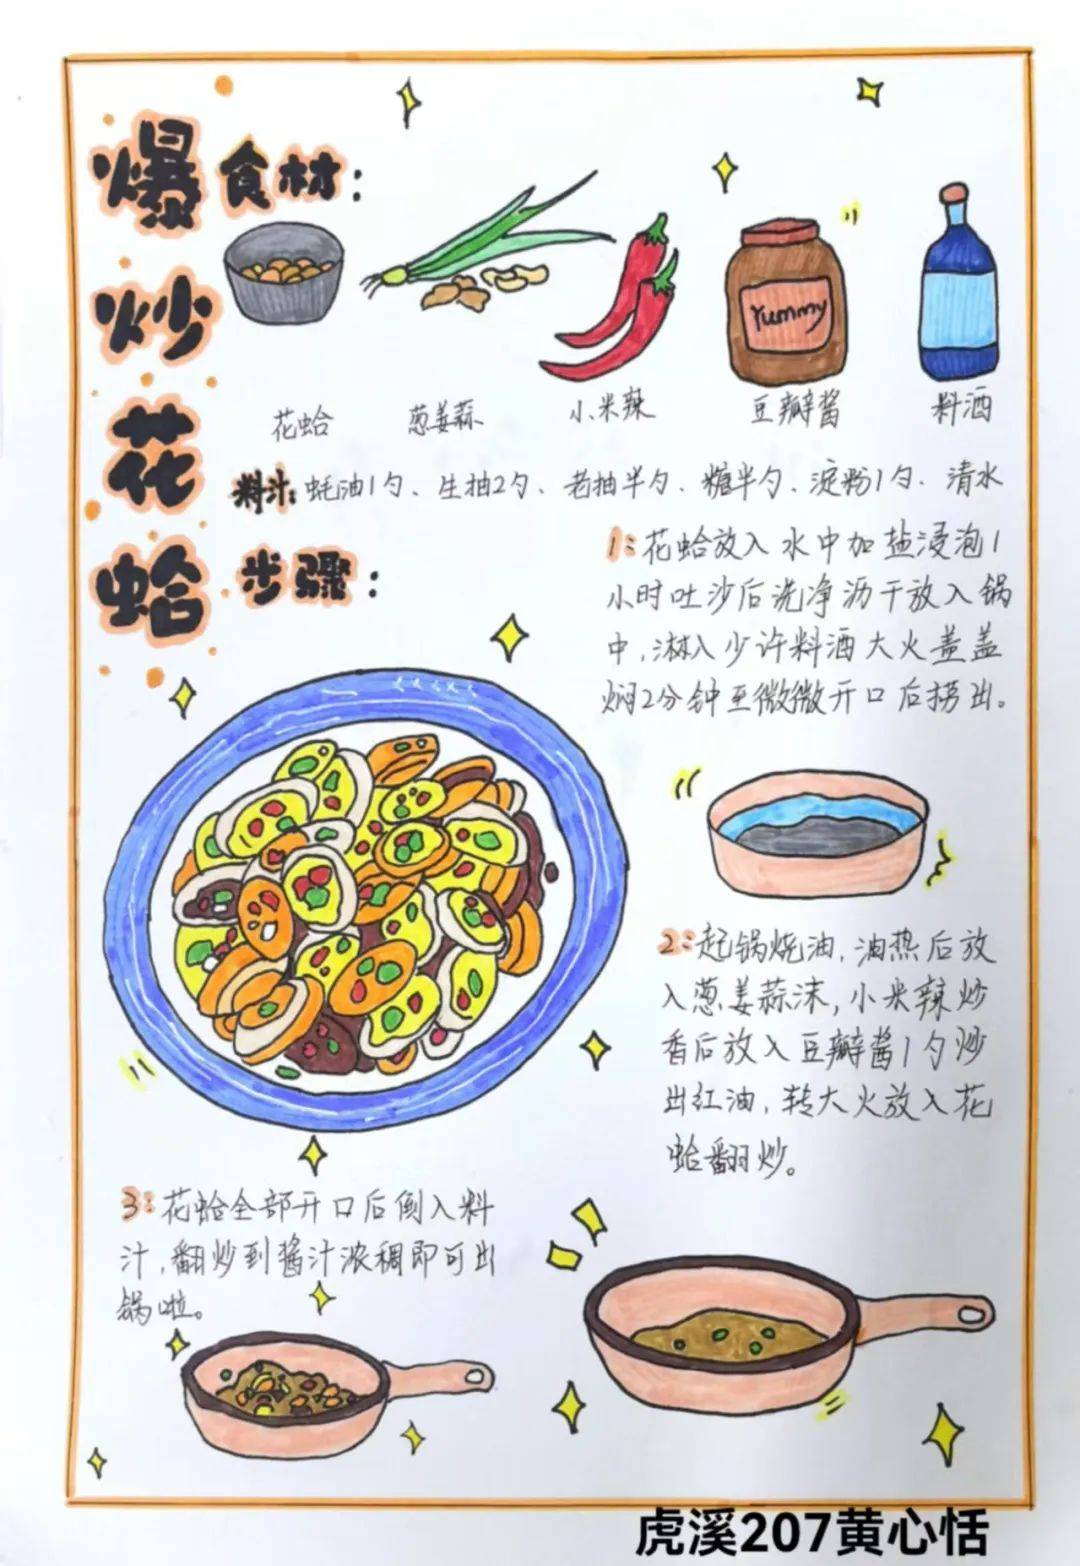 爆炒花蛤
食材：
Yummy
花蛤
葱姜蒜
小米辣
豆瓣酱
料酒
料汁：蚝油1勺、生抽2勺、老抽半勺、糖半勺、淀粉1勺、清水
步骤：
1：花蛤放入水中加盐浸泡1
小时吐沙后洗净沥干放入锅
中，淋入少许料酒大火盖盖
焖2分钟至微微开口后捞出。
2：起锅烧油，油热后放
入葱姜蒜沫，小米辣炒
香后放入豆瓣酱1勺炒
出红油，转大火放入花
蛤翻炒。
3：花蛤全部开口后倒入料
汁，翻炒到酱汁浓稠即可出
锅啦。
虎溪207黄心恬